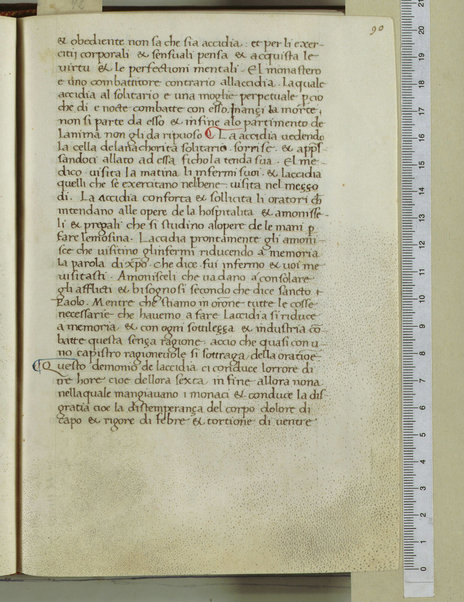 90
& obediente non sa che sia accidia : et per li exer-
citii corporali & sensuali pensa & acquista le
virtu & le perfectioni mentali . El monastero
e uno combattitore contrario allaccidia . La quale
accidia al solitario e una moglie perpetuale . pcio
che di e nocte combatte con esso . Inançi la morte ,
non si parte da esso & insine alo partimento de
lanima non gli da riposo . La accidia vedendo
la cella delanachorita solitario sorrise . & appr
sandoci allato ad essa ficho la tenda sua . El me-
dico visita la matina li infermi suoi . & laccidia
quelli che se exercitano nel bene . visita nel meçço
di . La accidia conforta & sollicita li oratori ch
intendano alle opere de la hospitalita & amonisse-
li & pregali che si studino alopere de le mani p
fare lemosina . Laccidia prontamente gli amoni-
sce che visitino glinfermi riducendo a memoria
la parola di xpo che dice . fui infermo & voi me
visitasti . Amonisceli che vadano a consolare
gli afflicti & bisognosi secondo che dice sancto
Paolo . Mentre che stiamo in orone tutte le cosse
necessarie che havemo a fare Laccidia si riduce
a memoria & con ogni sottileçça & industria co-
batte questa sença ragione . accio che quasi con u-
no capistro ragionevole si sottraga della oratioe
Questo demonio de laccidia ci conduce lorrore di
tre hore cioe dellora sexta in sine allora nona
nella quale mangiavano i monaci & conduce la dis-
gratia cioe la distemperança del corpo dolore di
capo & rigore di febre & tortione di ventre
21
20
19
18
17
16
15
14
13
12
11
10
9
8
7
6
5
4
3
2
1
0